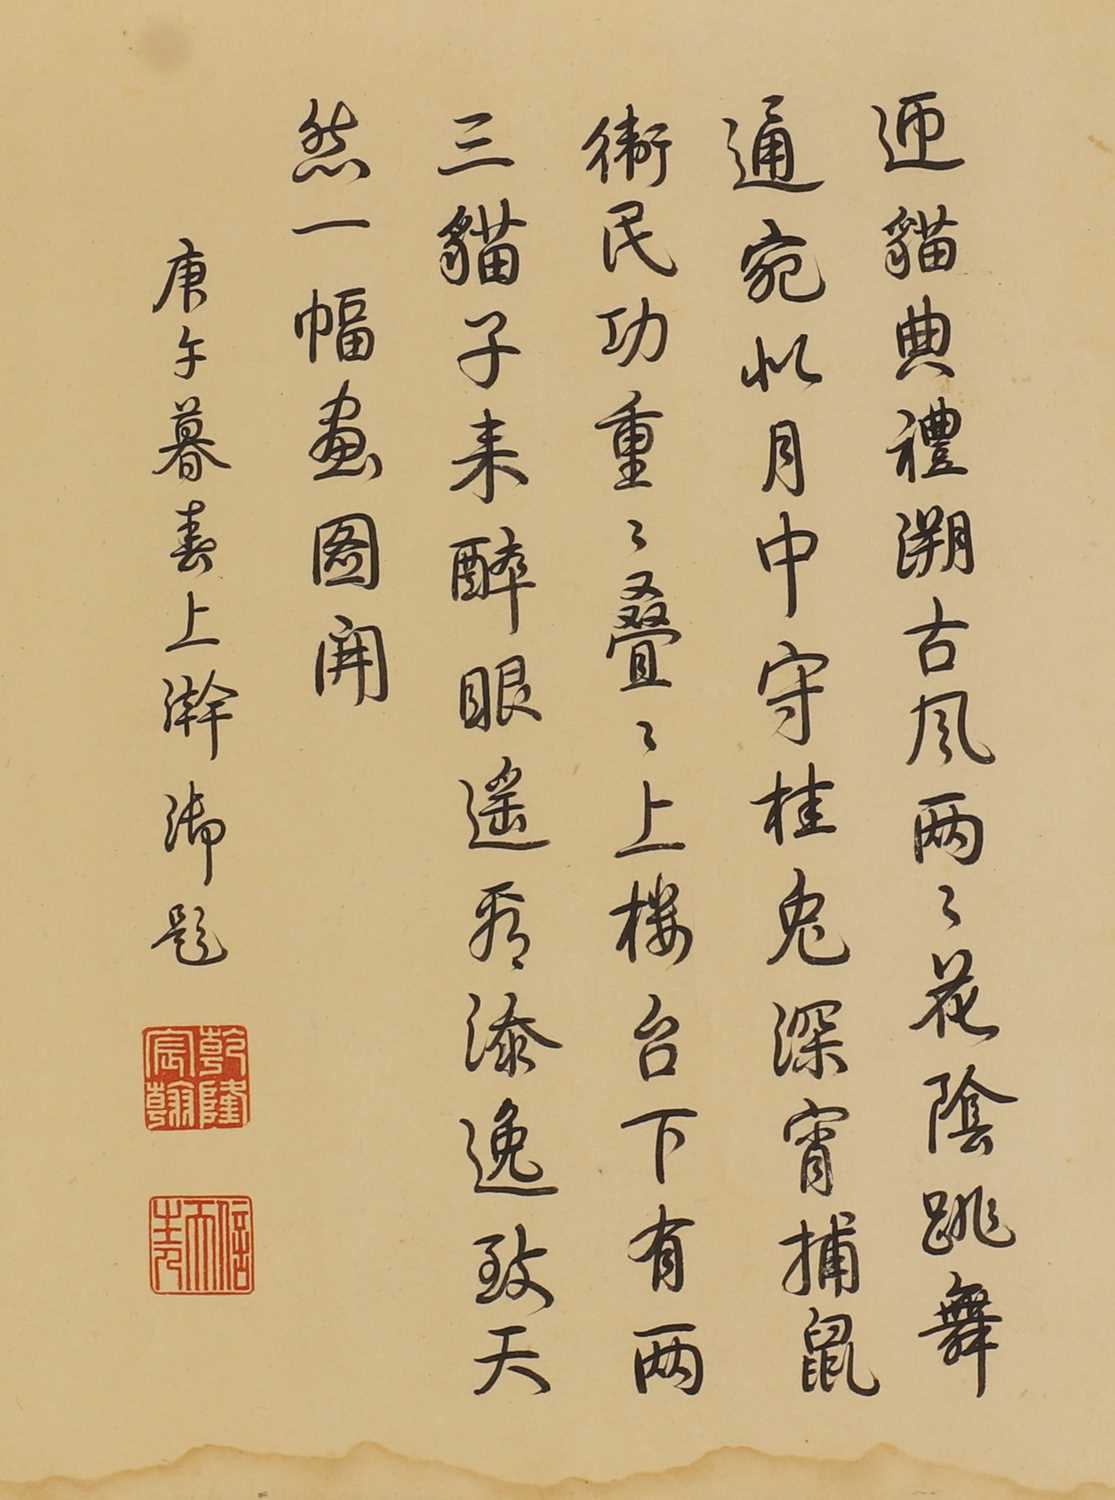 迎貓典禮溯古風两〻花陰跳舞
通宛似月中守桂兔深宵捕鼠
衛民功重〻叠〻上楼台下有两
三貓子来醉眼遥看添逸致天
然一幅畫圖開
庚午暮春上澣御題
乾隆宸翰
信天主人